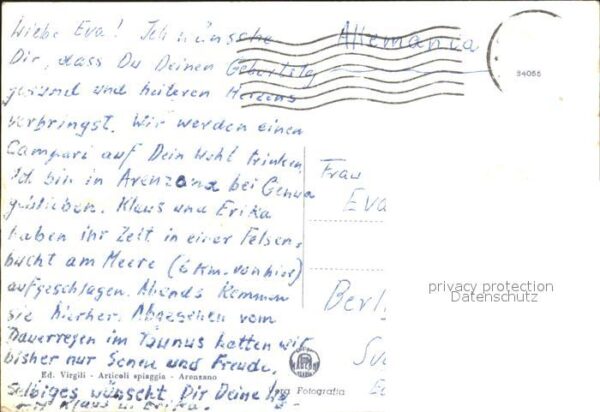 Liebe Eva! Ich wünsche
Dir, dass Du Deinen Geburtstag
gesund und heiteren Herzens
verbringst. Wir werden einen
Campari auf Dein Wohl trinken.
Ich bin in Arenzano bei Genua
geblieben. Klaus und Erika
haben ihr Zelt in einer Felsen-
bucht am Meere (6 km. von hier)
aufgeschlagen. Abends kommen
sie hierher. Abgesehen vom
Dauerregen im Taunus hatten wir
bisher nur Sonne und Freude.
Ed. Virgili - Articoli spiaggia - Arenzano
selbiges wünscht Dir Deine
Klaus u. Erika.
Allemania
94066
Frau
Eva
Berl
privacy protection
Datenschutz
Fotografia